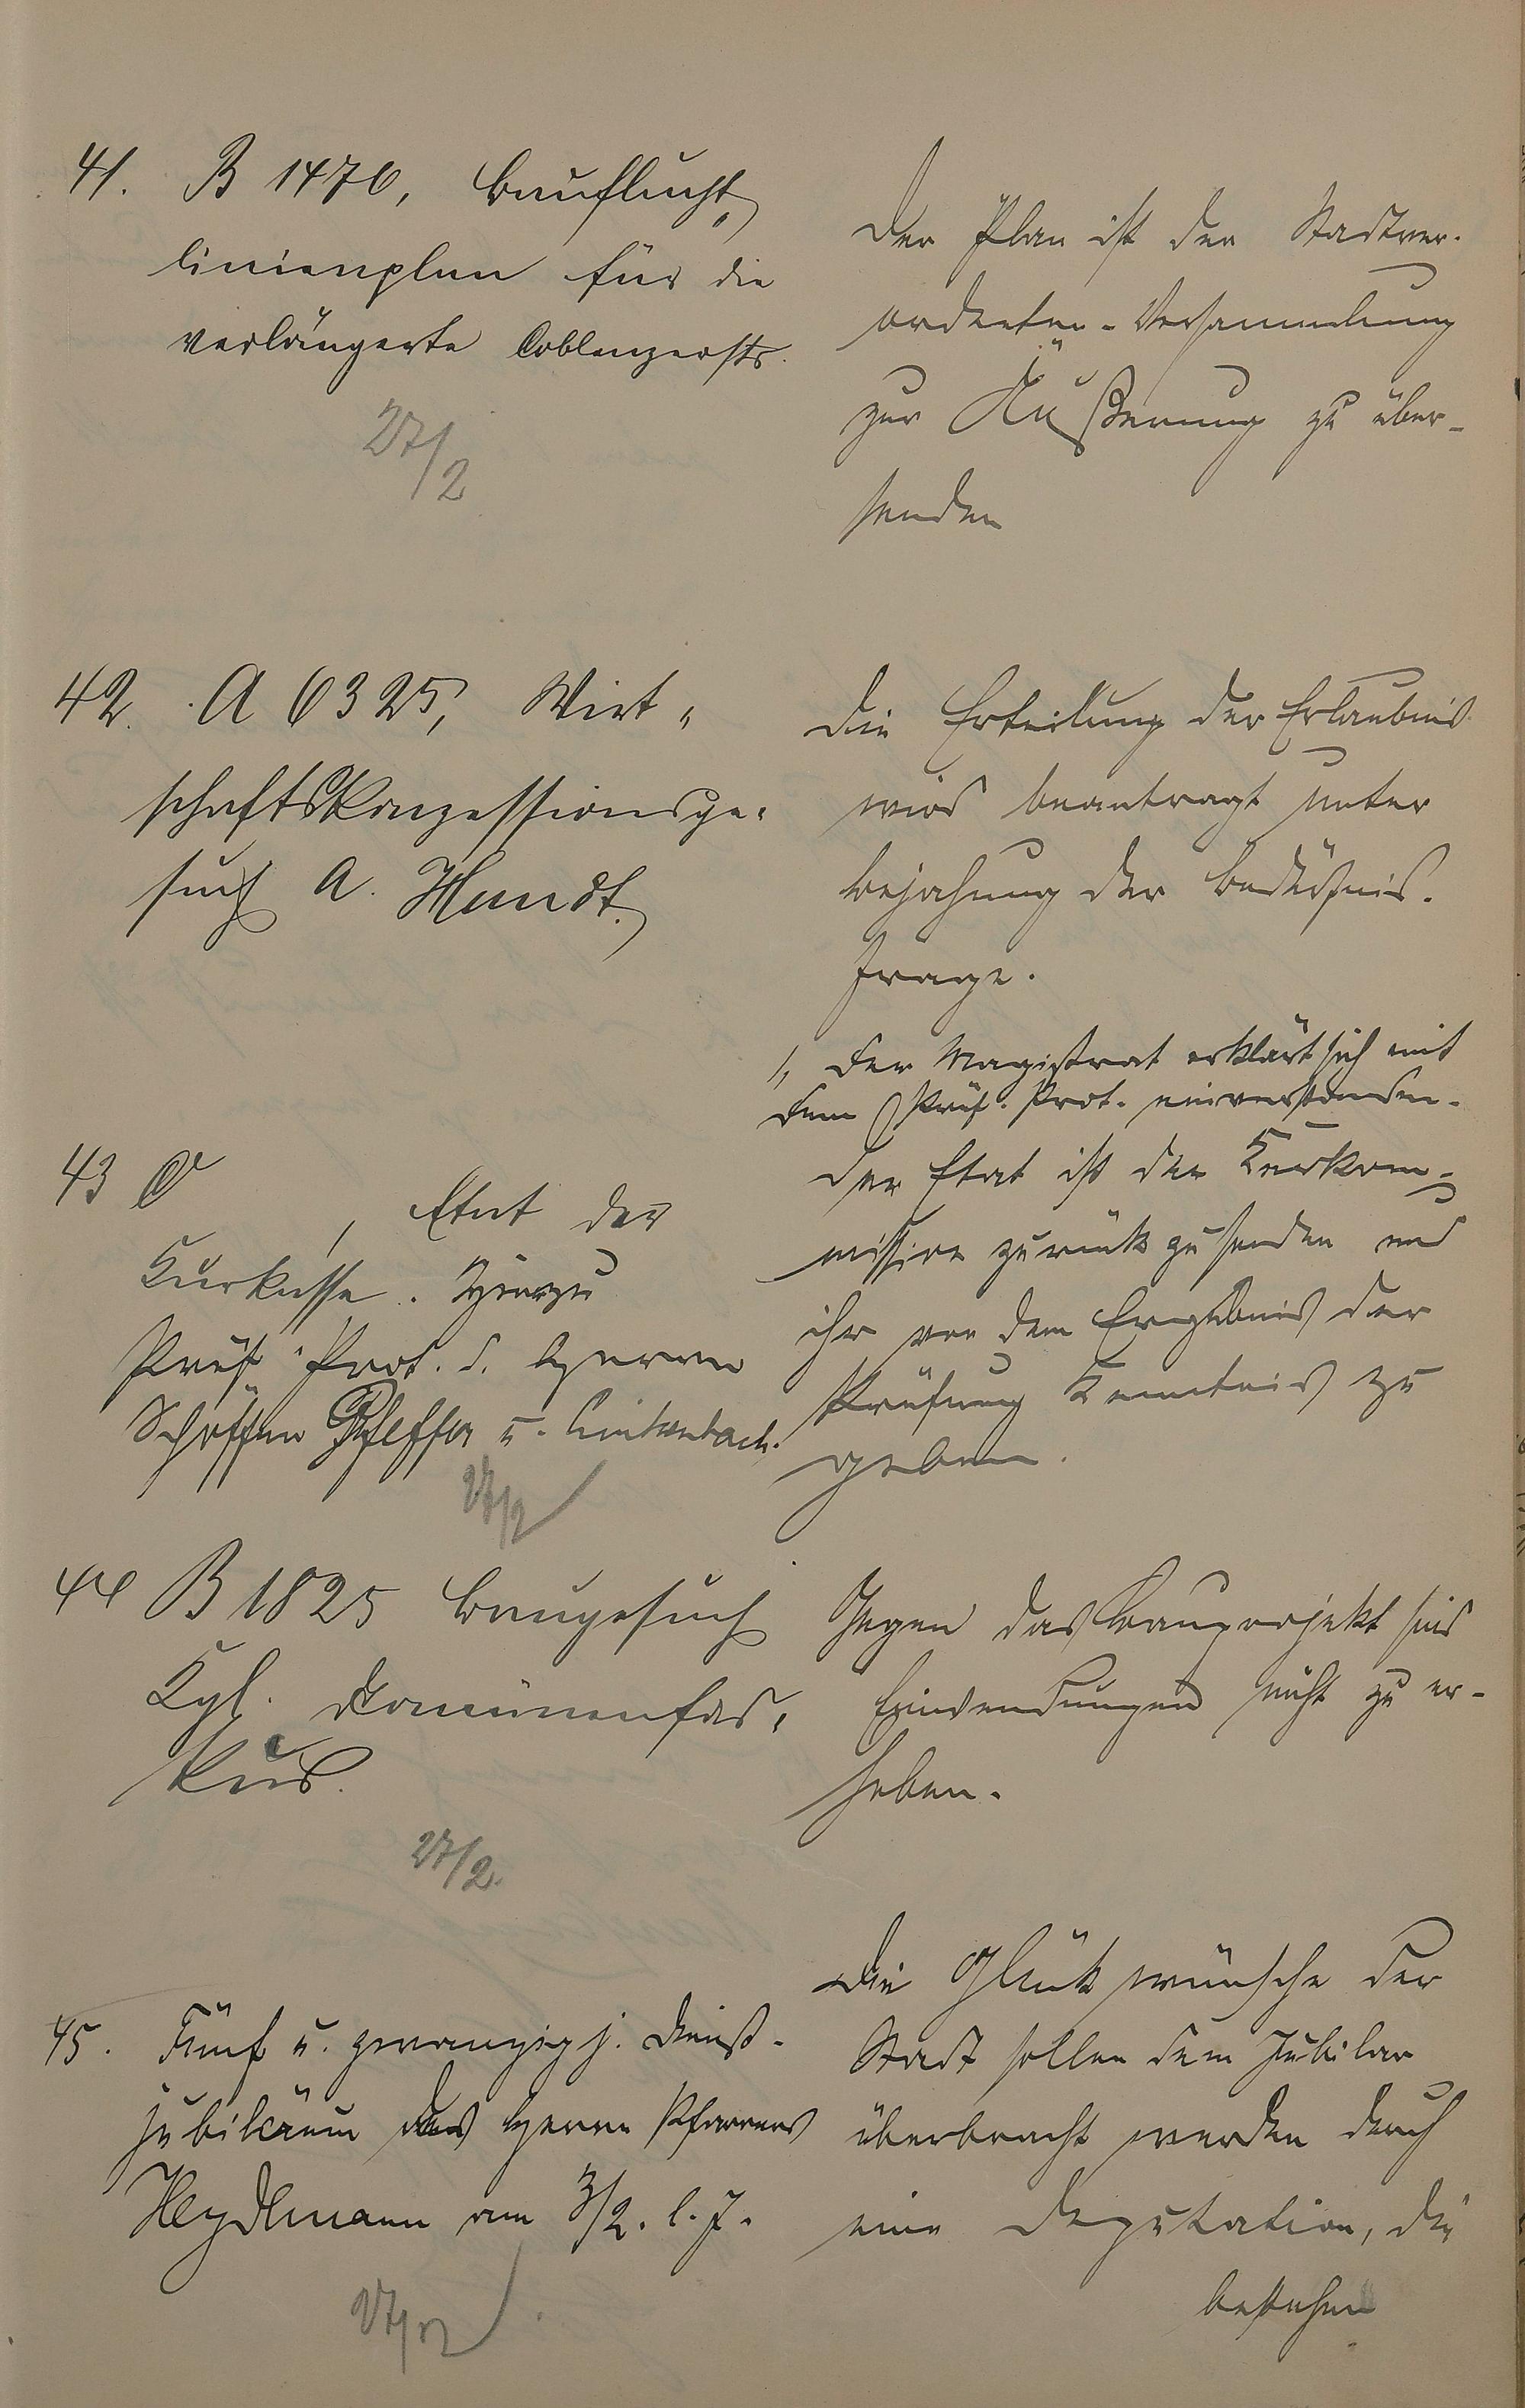 41. B 1476, Bauflucht„
linienplan für die
verlängerte Coblenzerstr.
27/2
Der Plan ist der Stadtver-
ordneten-Versammlung
zur Äußerung zu über-
senden
42. A 6325, Wirt„
schaftskonzessionsge„
such A. Hundt.
Die Erteilung der Erlaubnis
wird beantragt unter
Bejahung der Bedürfnis-
frage.
43 C , Etat der
Kurkasse. Hierzu
Prüf. Prot. d. Herren
Schöffen Pfeffer u.
27/2
1, Der Magistrat erklärt sich mit
dem Prüf. Prot. einverstanden.
Der Etat ist der Kurkom-
mission zurückzusenden und
ihr von dem Ergebnis der
Prüfung Kenntnis zu
geben.
44 B 1825 Baugesuch
Kgl. Domänenfis„
kus.
27/2.
Gegen das Bauprojekt sind
Einwendungen nicht zu er-
heben.
45. Fünf u. zwanzigj. Dienst-
jubiläum des Herrn Pfarrers
Heydemann am 3/2. l. J.
27/2
Die Glückwünsche der
Stadt sollen dem Jubilar
überbracht werden durch
eine Deputation, die
bestehen